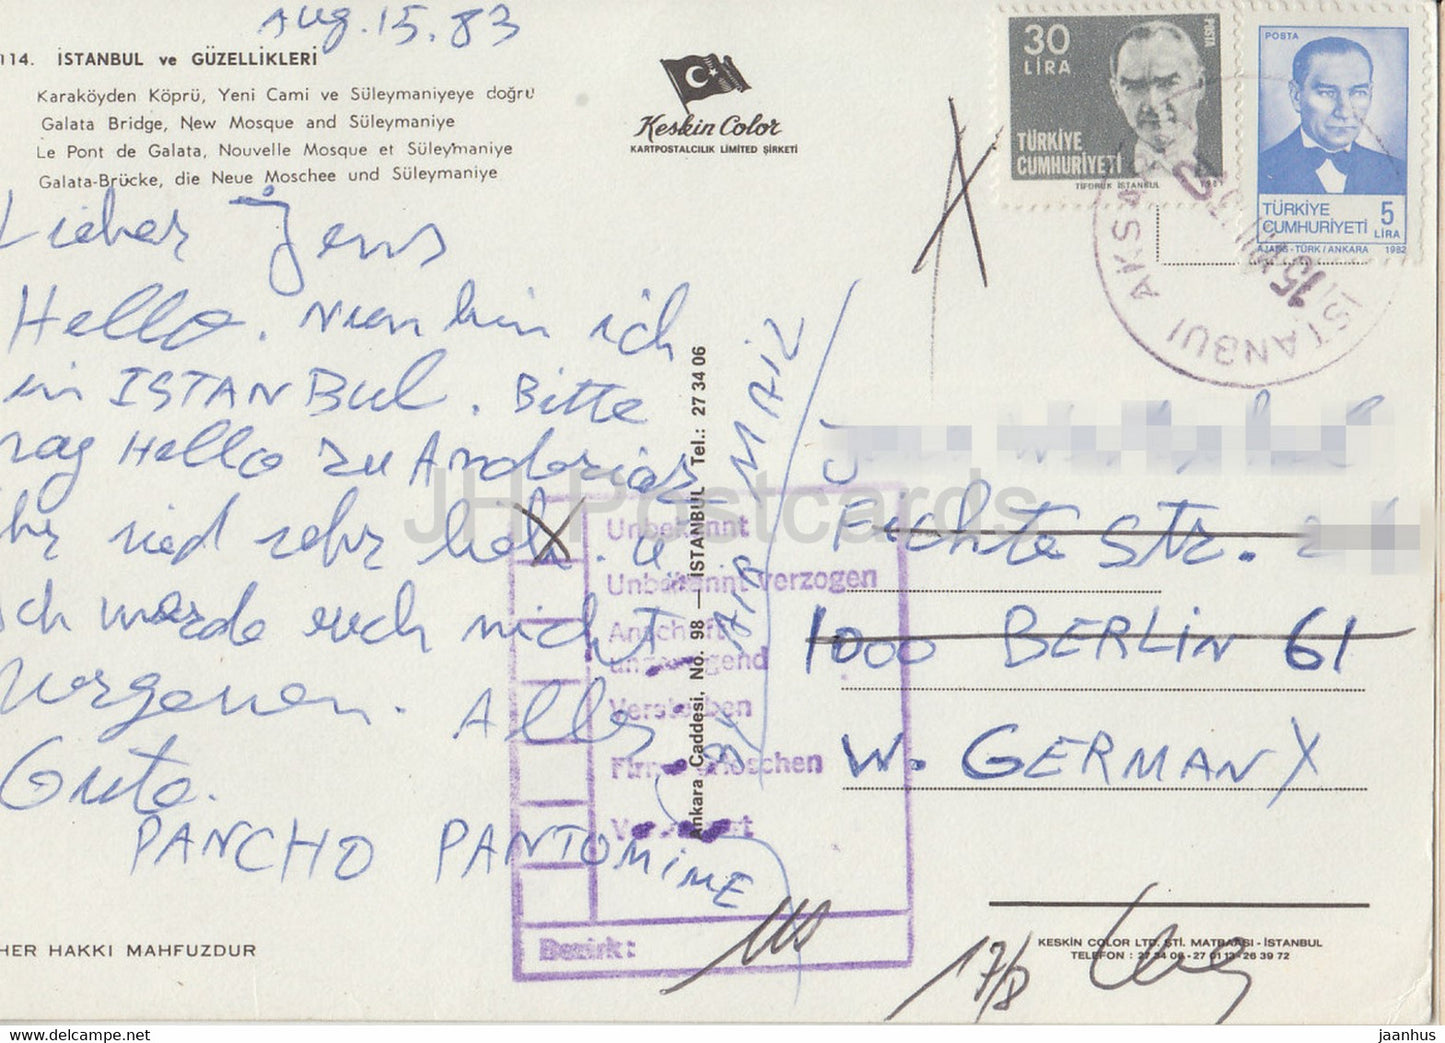 Aug. 15. 83
114. İSTANBUL ve GÜZELLİKLERİ
Karaköyden Köprü, Yeni Cami ve Süleymaniyeye doğru
Galata Bridge, New Mosque and Süleymaniye
Le Pont de Galata, Nouvelle Mosque et Süley'maniye
Galata-Brücke, die Neue Moschee und Süleymaniye
Keskin Color
KARTPOSTALCILIK LIMITED ŞİRKETİ
30
LİRA
POSTA
TÜRKİYE
CUMHURİYETİ
TİFDRUK İSTANBUL
POSTA
TÜRKİYE
CUMHURİYETİ
5
LİRA
AJANS-TÜRK/ANKARA 1982
İSTANBUL AKS
15
Lieber Jens
Hello. Nun bin ich
in ISTANBUL. Bitte
rag Hello zu Andreias
hr sied sehr lieb. u
ch werde euch nicht
Vergessen. Alles
Gute.
PANCHO PANTOMIME
BY AIR MAIL
Ankara Caddesi, No. 98 — İSTANBUL Tel.: 27 34 06
Unbekannt
Unbekannt verzogen
Anschrift
ungenügend
Verstorben
Firma erloschen
Bezirk:
Fichte Str.
1000 BERLIN 61
W. GERMANY
17/8
HER HAKKI MAHFUZDUR
KESKİN COLOR LTD. ŞTİ. MATBAASI - İSTANBUL
TELEFON : 27 34 06 - 27 01 13 - 26 39 72
JH Postcards
www.delcampe.net
jaanhus